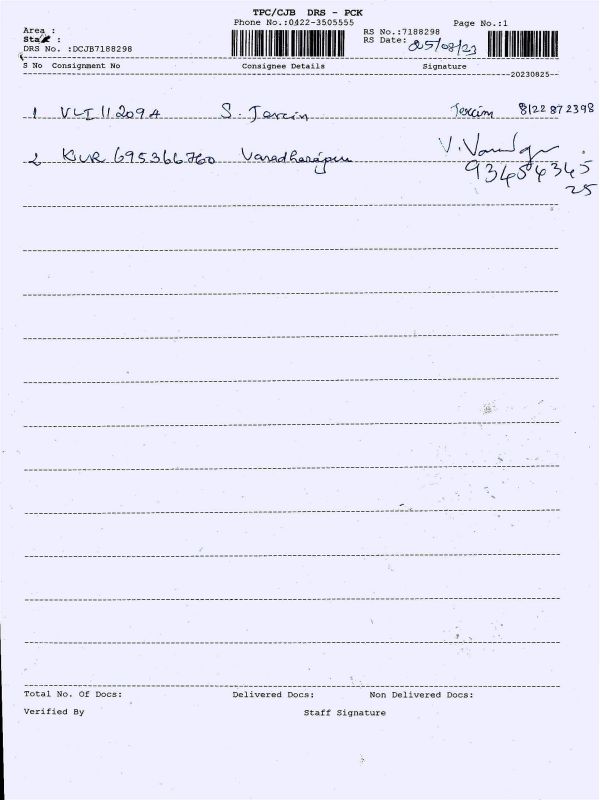 TPC/CJB DRS - PCK
Phone No.:0422-3505555
Page No.:1
Area :
Staff :
RS No.:7188298
RS Date: 25/08/23
DRS No. :DCJB7188298
S No Consignment No Consignee Details Signature
20230825
1 VLI112094 S. Jercin Jercim 8122872398
2 KUR 695366760 V. 9345434525
Total No. Of Docs: Delivered Docs: Non Delivered Docs:
Verified By Staff Signature